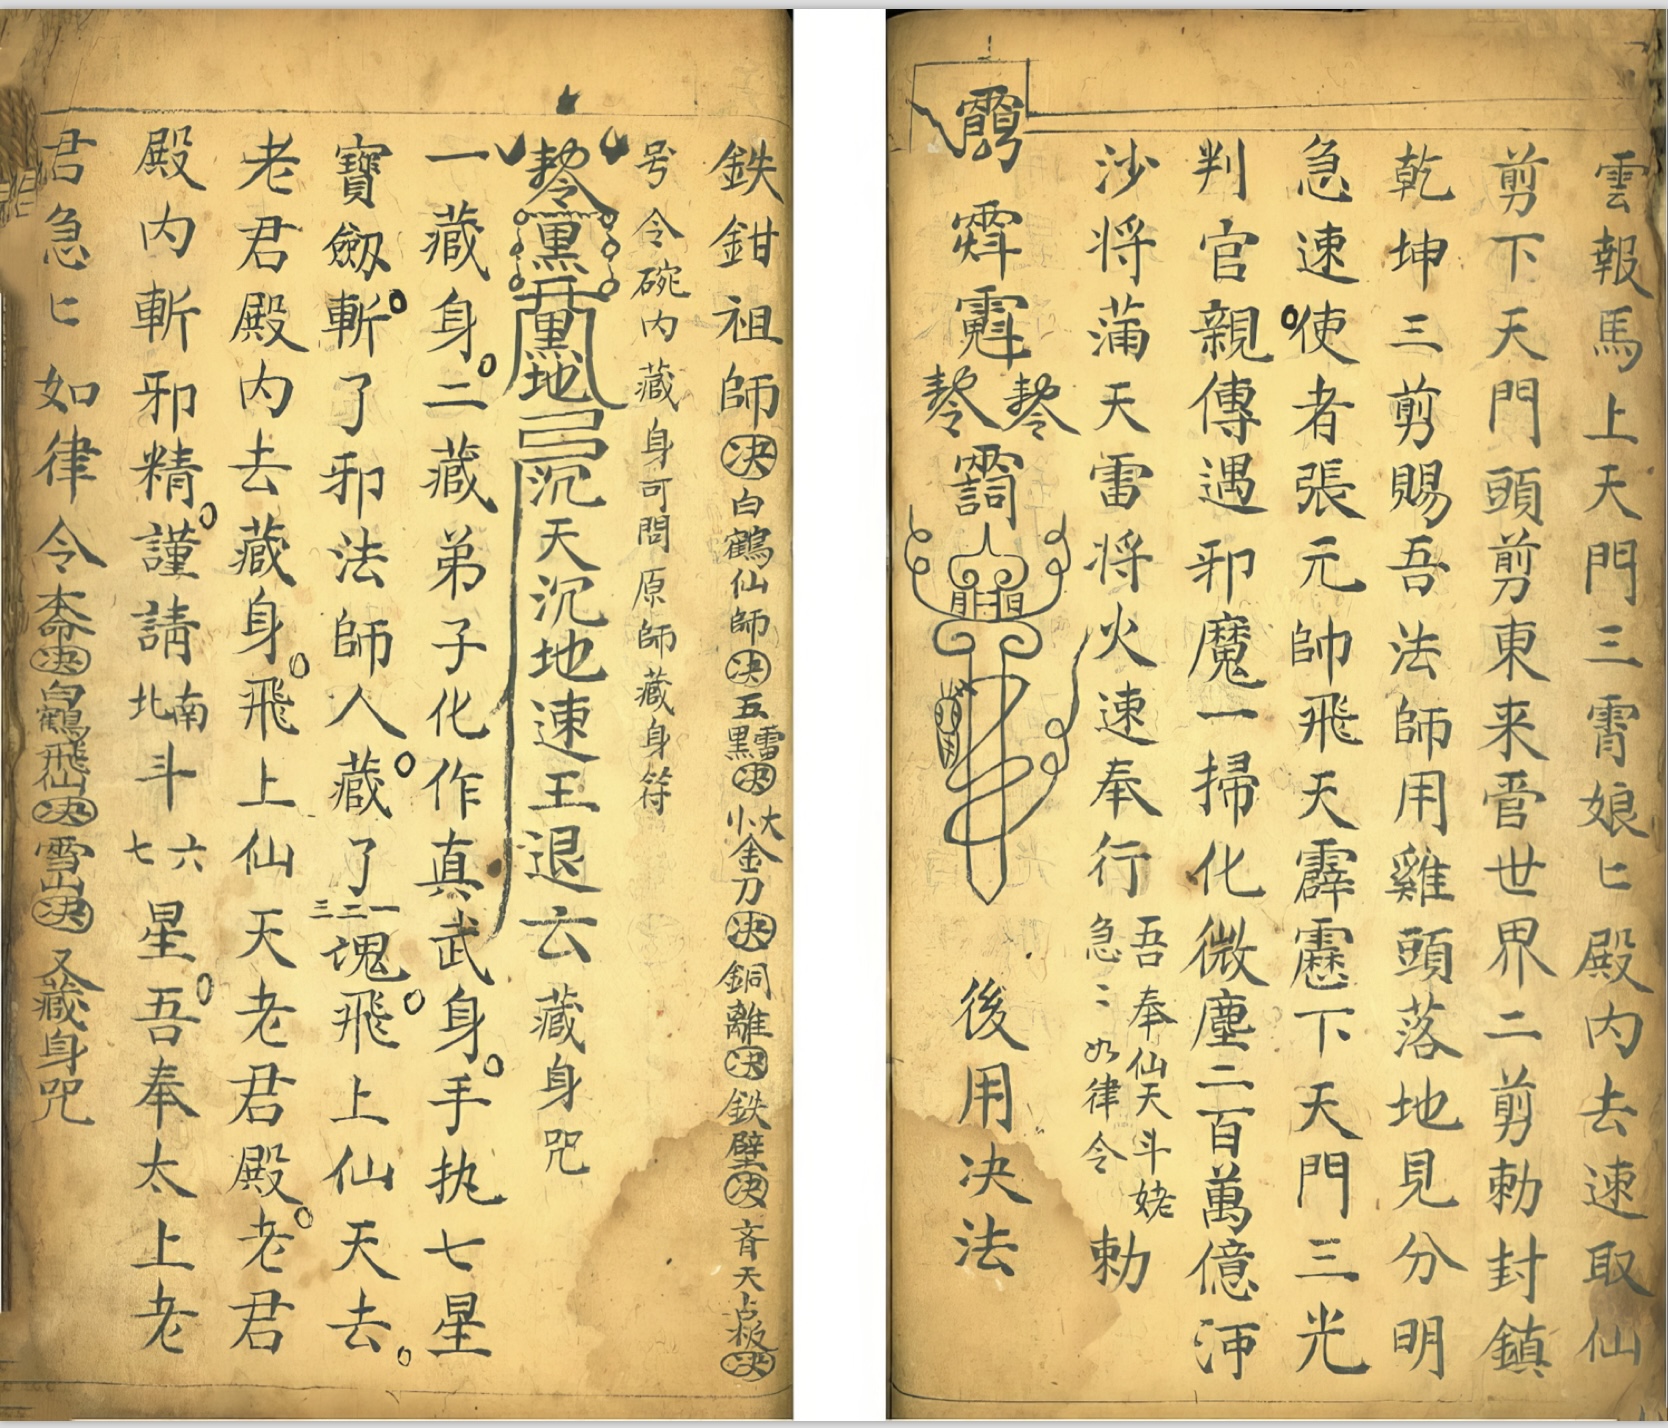 雲報馬上天門三霄娘匕殿内去速取仙
剪下天門頭剪東来管世界二剪勅封鎮
乾坤三剪賜吾法師用雞頭落地見分明
急速使者張元帥飛天霹靂下天門三光
判官親傳遇邪魔一掃化微塵二百萬億河
沙将蒲天雷将火速奉行
吾奉仙天斗姥
急〻如律令
勅
後用决法
鉄鉗祖師决白鶴仙師决五雷黑决大小金刀决銅離决鉄壁决斉天点板决
号令碗内藏身可問原師藏身符
沉天沉地速王退云藏身咒
一藏身二藏弟子化作真武身手执七星
寶劔斬了邪法師人藏了一二三魂飛上仙天去
老君殿内去藏身飛上仙天老君殿老君
殿内斬邪精謹請南北斗六七星吾奉太上老
君急匕如律令本命决白鶴飛仙决雪山决又藏身咒